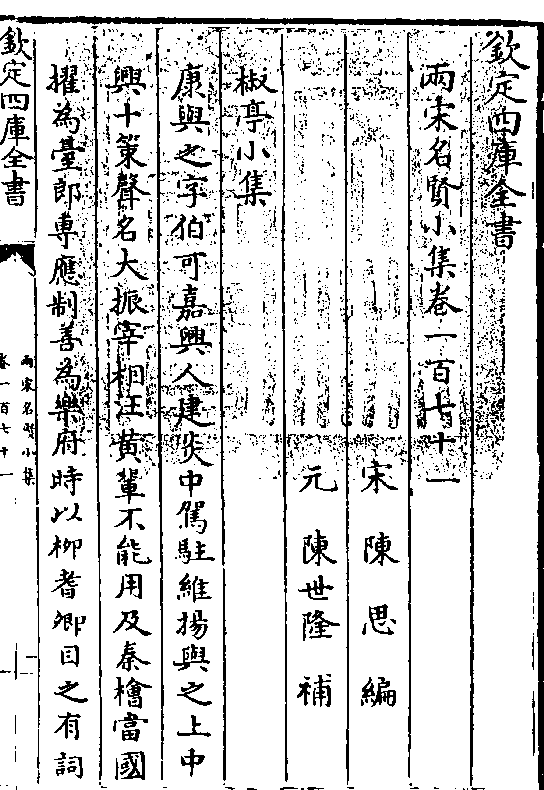 欽定四庫全書
兩宋名賢小集卷一百七十一
宋 陳思 編
元 陳世隆 補
椒亭小集
康與之字伯可嘉興人建炎中駕駐維揚與之上中
興十策聲名大振宰相汪黄輩不能用及秦檜當國
擢為臺郎專應制善為樂府時以柳耆卿目之有詞
欽定四庫全書
兩宋名賢小集
卷一百七十一
一